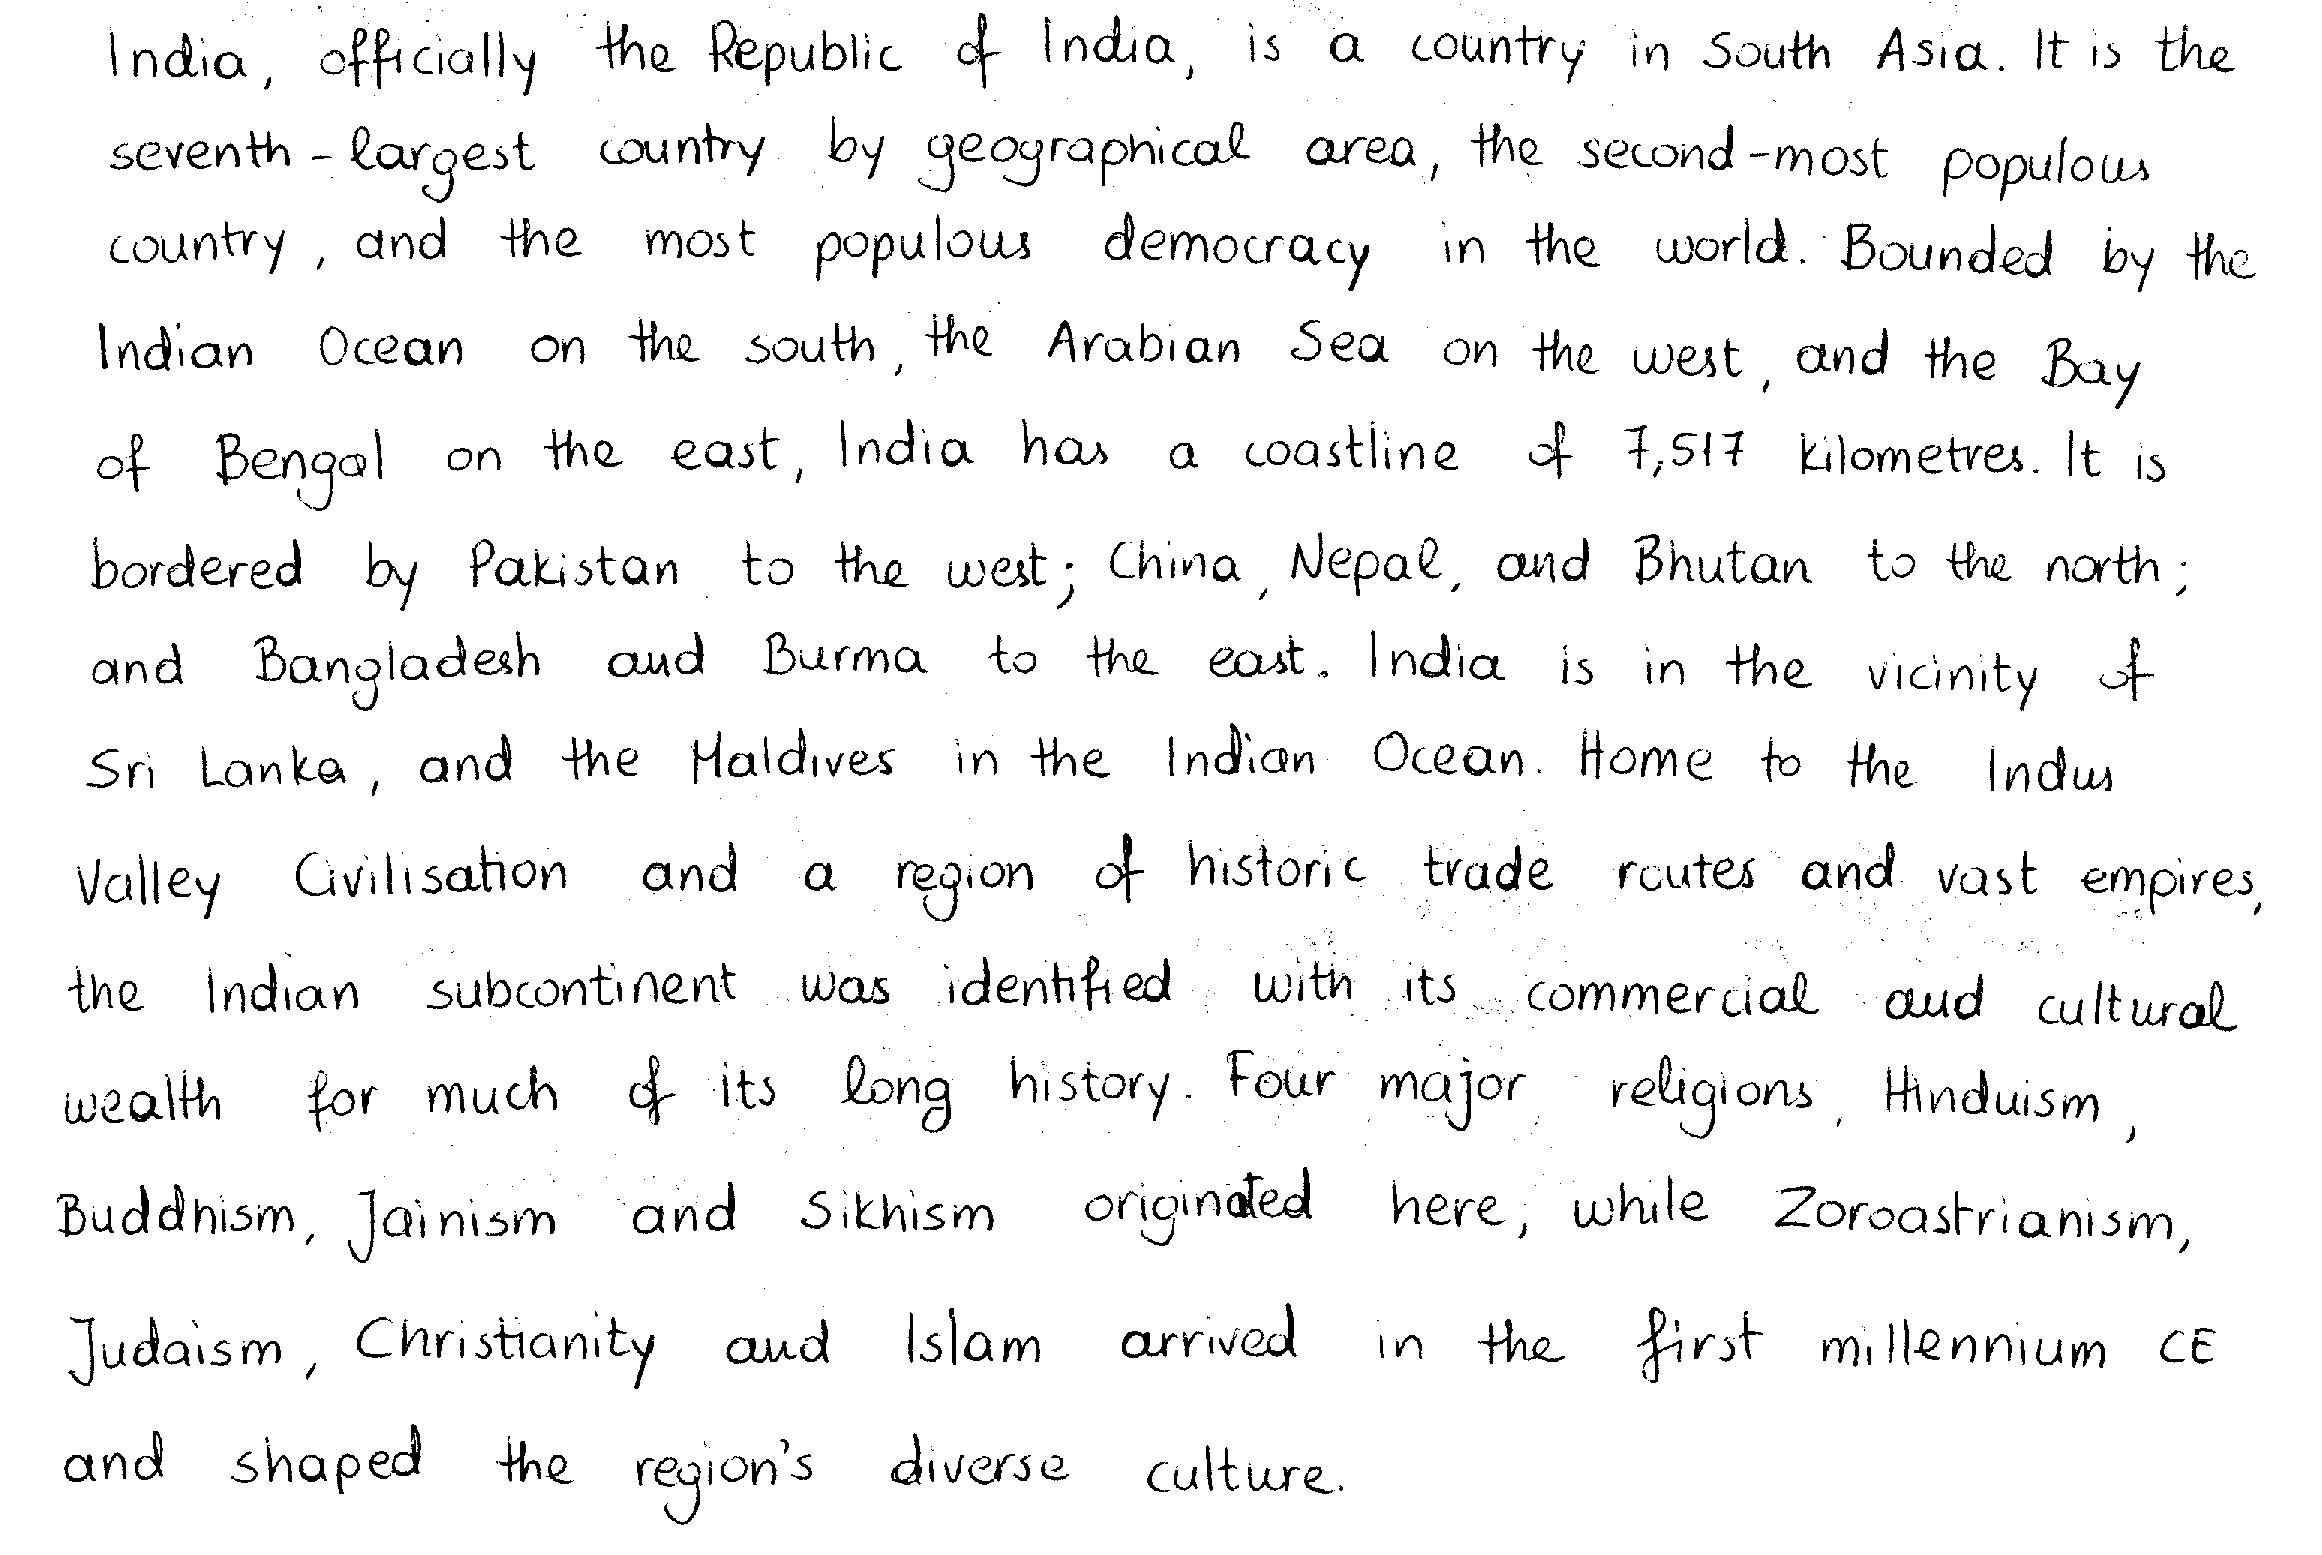 India, officially the Republic of India, is a country in South Asia. It is the
seventh-largest country by geographical area, the second-most populous
country, and the most populous democracy in the world. Bounded by the
Indian Ocean on the south, the Arabian Sea on the west, and the Bay
of Bengal on the east, India has a coastline of 7,517 kilometres. It is
bordered by Pakistan to the west; China, Nepal, and Bhutan to the north;
and Bangladesh and Burma to the east. India is in the vicinity of
Sri Lanka, and the Maldives in the Indian Ocean. Home to the Indus
Valley Civilisation and a region of historic trade routes and vast empires,
the Indian subcontinent was identified with its commercial and cultural
wealth for much of its long history. Four major religions, Hinduism,
Buddhism, Jainism and Sikhism originated here, while Zoroastrianism,
Judaism, Christianity and Islam arrived in the first millennium CE
and shaped the region's diverse culture.